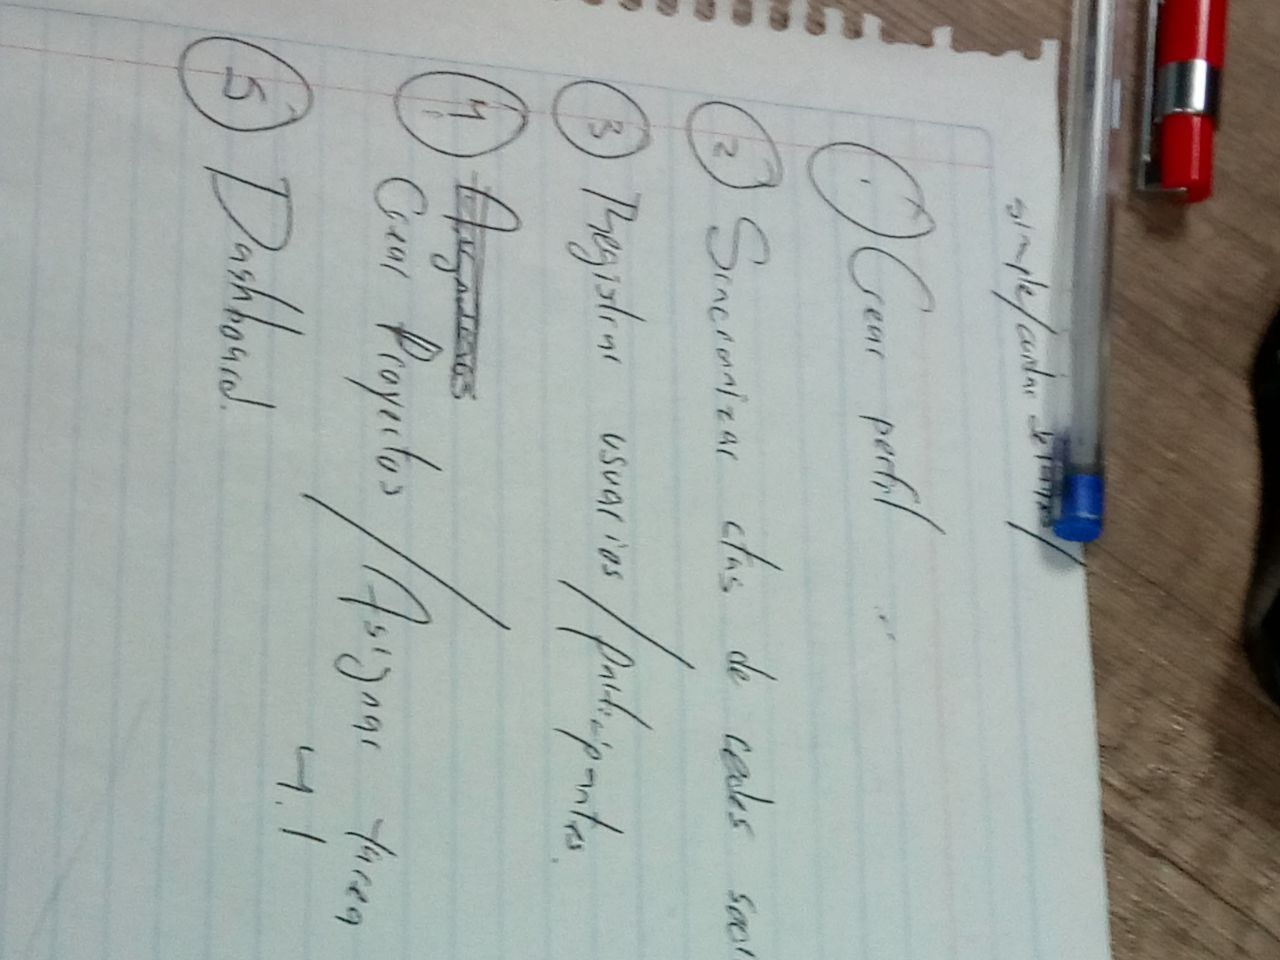 simple/
1. Crear perfil
2 Sincronizar ctas de redes
3 Registrar usuarios/participantes.
4.
Crear Proyectos / Asignar tarea
4.1
5 Dashboard.